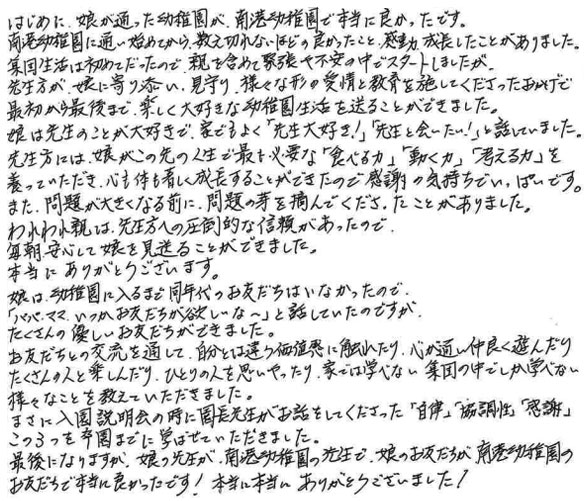 はじめに、娘が通った幼稚園が、南港幼稚園で本当に良かったです。
南港幼稚園に通い始めてから、数え切れないほどの良かったこと、感動、成長したことがありました。
集団生活は初めてだったので、親も含めて緊張や不安の中でスタートしましたが、
先生方が、娘に寄り添い、見守り、様々な形の愛情と教育を施してくださったおかげで
最初から最後まで、楽しく大好きな幼稚園生活を送ることができました。
娘は先生のことが大好きで、家でもよく「先生大好き!」「先生と会いたい!」と話していました。
先生方には、娘がこの先の人生で最も必要な「食べる力」「動く力」「考える力」を
養っていただき、心も体も著しく成長することができたので感謝の気持ちでいっぱいです。
また、問題が大きくなる前に、問題の芽を摘んでくださったことがありました。
われわれ親は、先生方への圧倒的な信頼があったので、
毎朝、安心して娘を見送ることができました。
本当にありがとうございます。
娘は、幼稚園に入るまで同年代のお友だちはいなかったので、
「パパ、ママ、いつかお友だちが欲しいな〜」と話していたのですが、
たくさんの優しいお友だちができました。
お友だちとの交流を通して、自分とは違う価値感に触れたり、心が通い仲良く遊んだり
たくさんの人と楽しんだり、ひとりの人を思いやったり、家では学べない集団の中でしか学べない
様々なことを教えていただきました。
まさに入園説明会の時に園長先生がお話をしてくださった「自律」「協調性」「感謝」
この3つを卒園までに学ばせていただきました。
最後になりますが、娘の先生が、南港幼稚園の先生で、娘のお友だちが、南港幼稚園の
お友だちで本当に良かったです!本当に本当にありがとうございました!